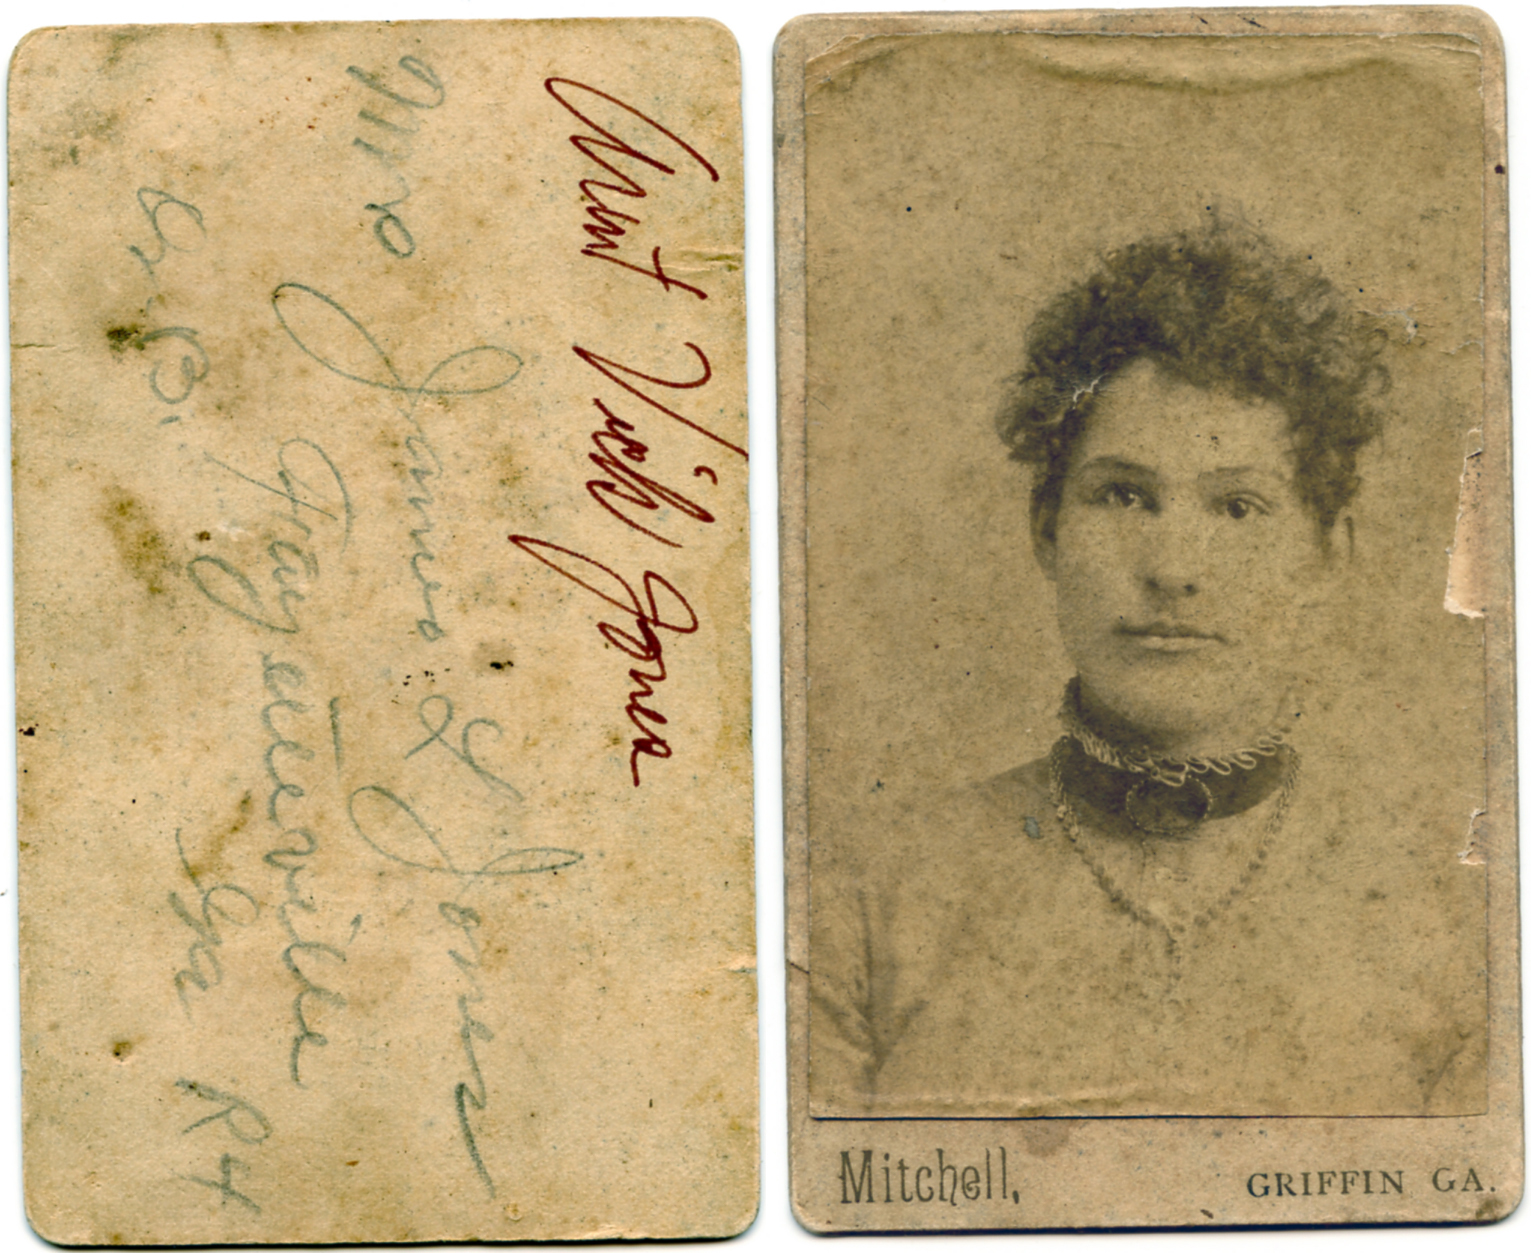 Aunt Vick Jones
Mrs James Jones
Fayetteville
Ga R4
Mitchell, GRIFFIN GA.